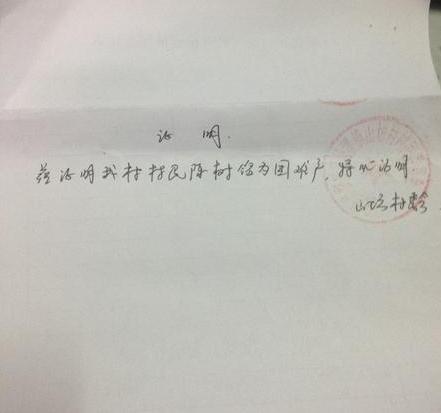 证明.
兹证明我村村民陈树 为困难户,特此证明.
山 村委